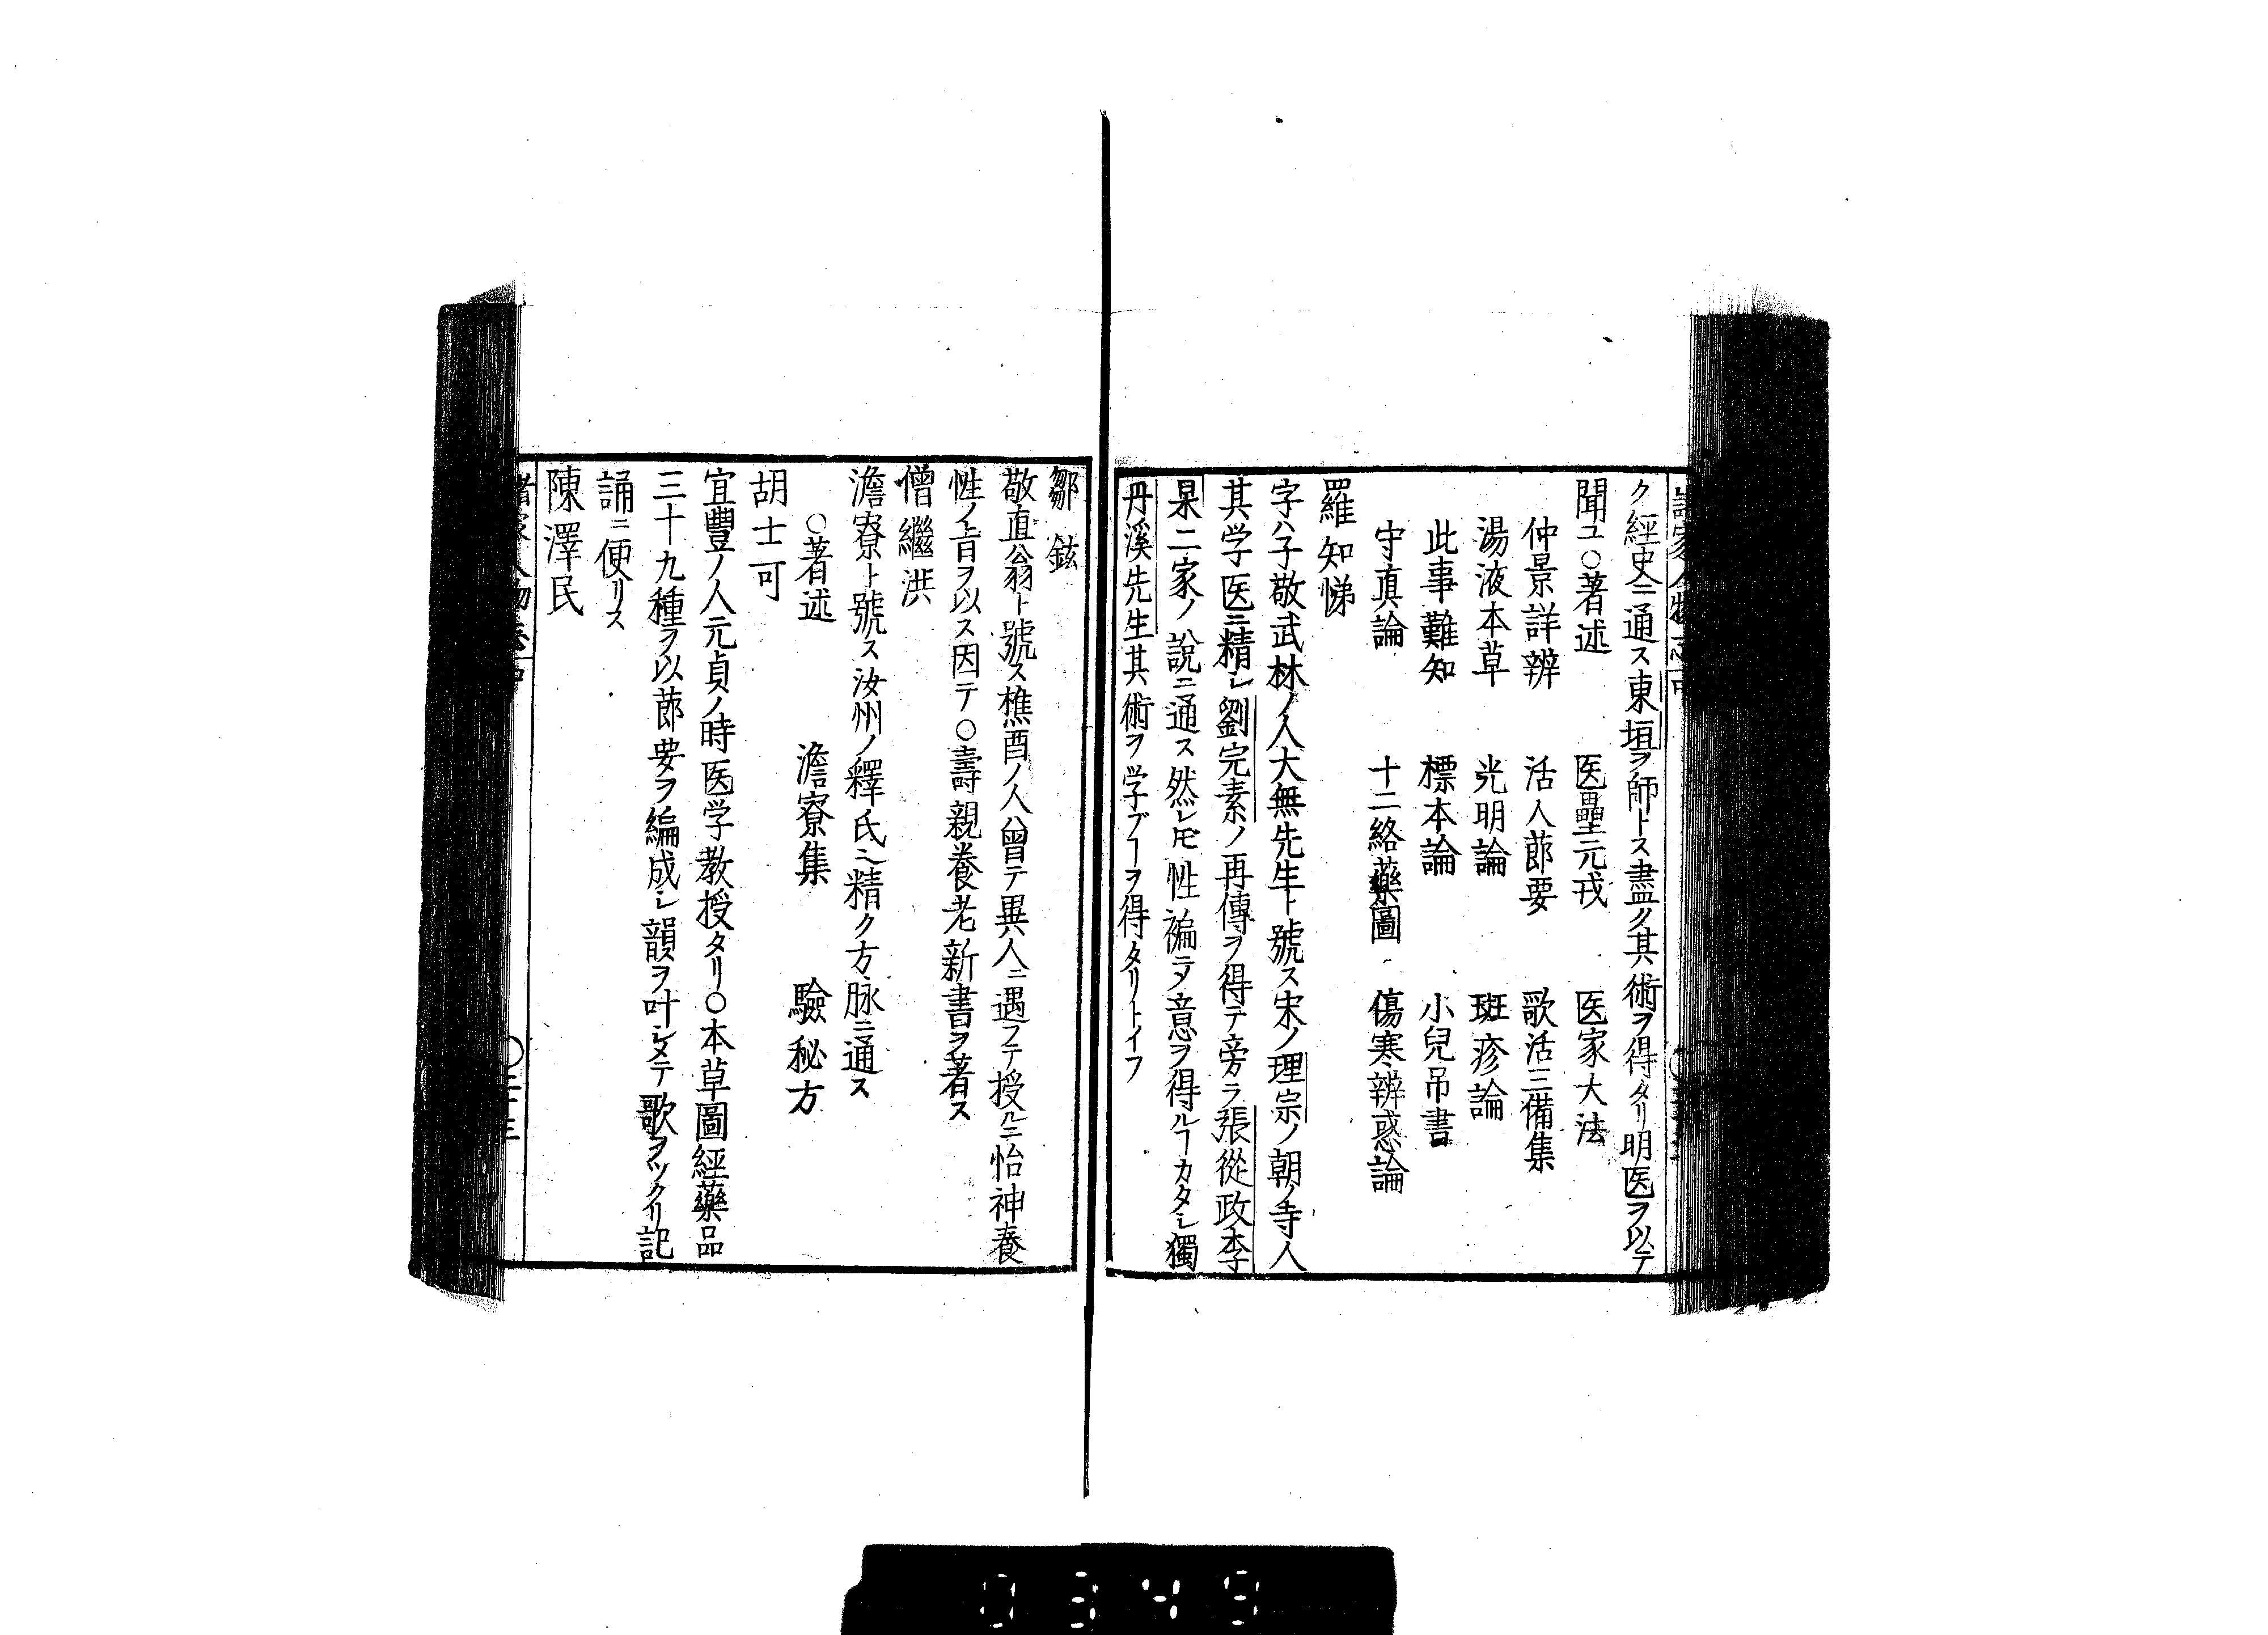 ク經史ニ通ス東垣ヲ師トス盡ク其術ヲ得タリ明医ヲ以テ
聞ユ○著述　医壘元戎　医家大法
仲景詳辨　活人莭要　歌活三備集
湯液本草　光明論　斑疹論
此事難知　標本論　小兒吊書
守真論　十二絡藥圖　傷寒辨惑論
羅知悌
字ハ子敬武林ノ人大無先生ト號ス宋ノ理宗ノ朝ノ寺人
其学医ニ精シ劉完素ノ再傳ヲ得テ旁ラ張從政李
杲二家ノ說ニ通ス然レ𪜈性褊ニメ意ヲ得ルヿカタシ獨
丹溪先生其術ヲ学ブヿヲ得タリトイフ
鄒鉉
敬直翁ト號ス樵酉ノ人曾テ異人ニ遇フテ授ルニ怡神養
性ノ旨ヲ以ス因テ○壽親養老新書ヲ著ス
僧繼洪
澹寮ト號ス汝州ノ釋氏ニ精ク方脉ニ通ス
○著述　澹寮集　驗秘方
胡士可
宜豐ノ人元貞ノ時医学教授タリ○本草圖經藥品
三十九種ヲ以莭要ヲ編成シ韻ヲ叶シメテ歌ヲツクリ記
誦ニ便リス
陳澤民
0349